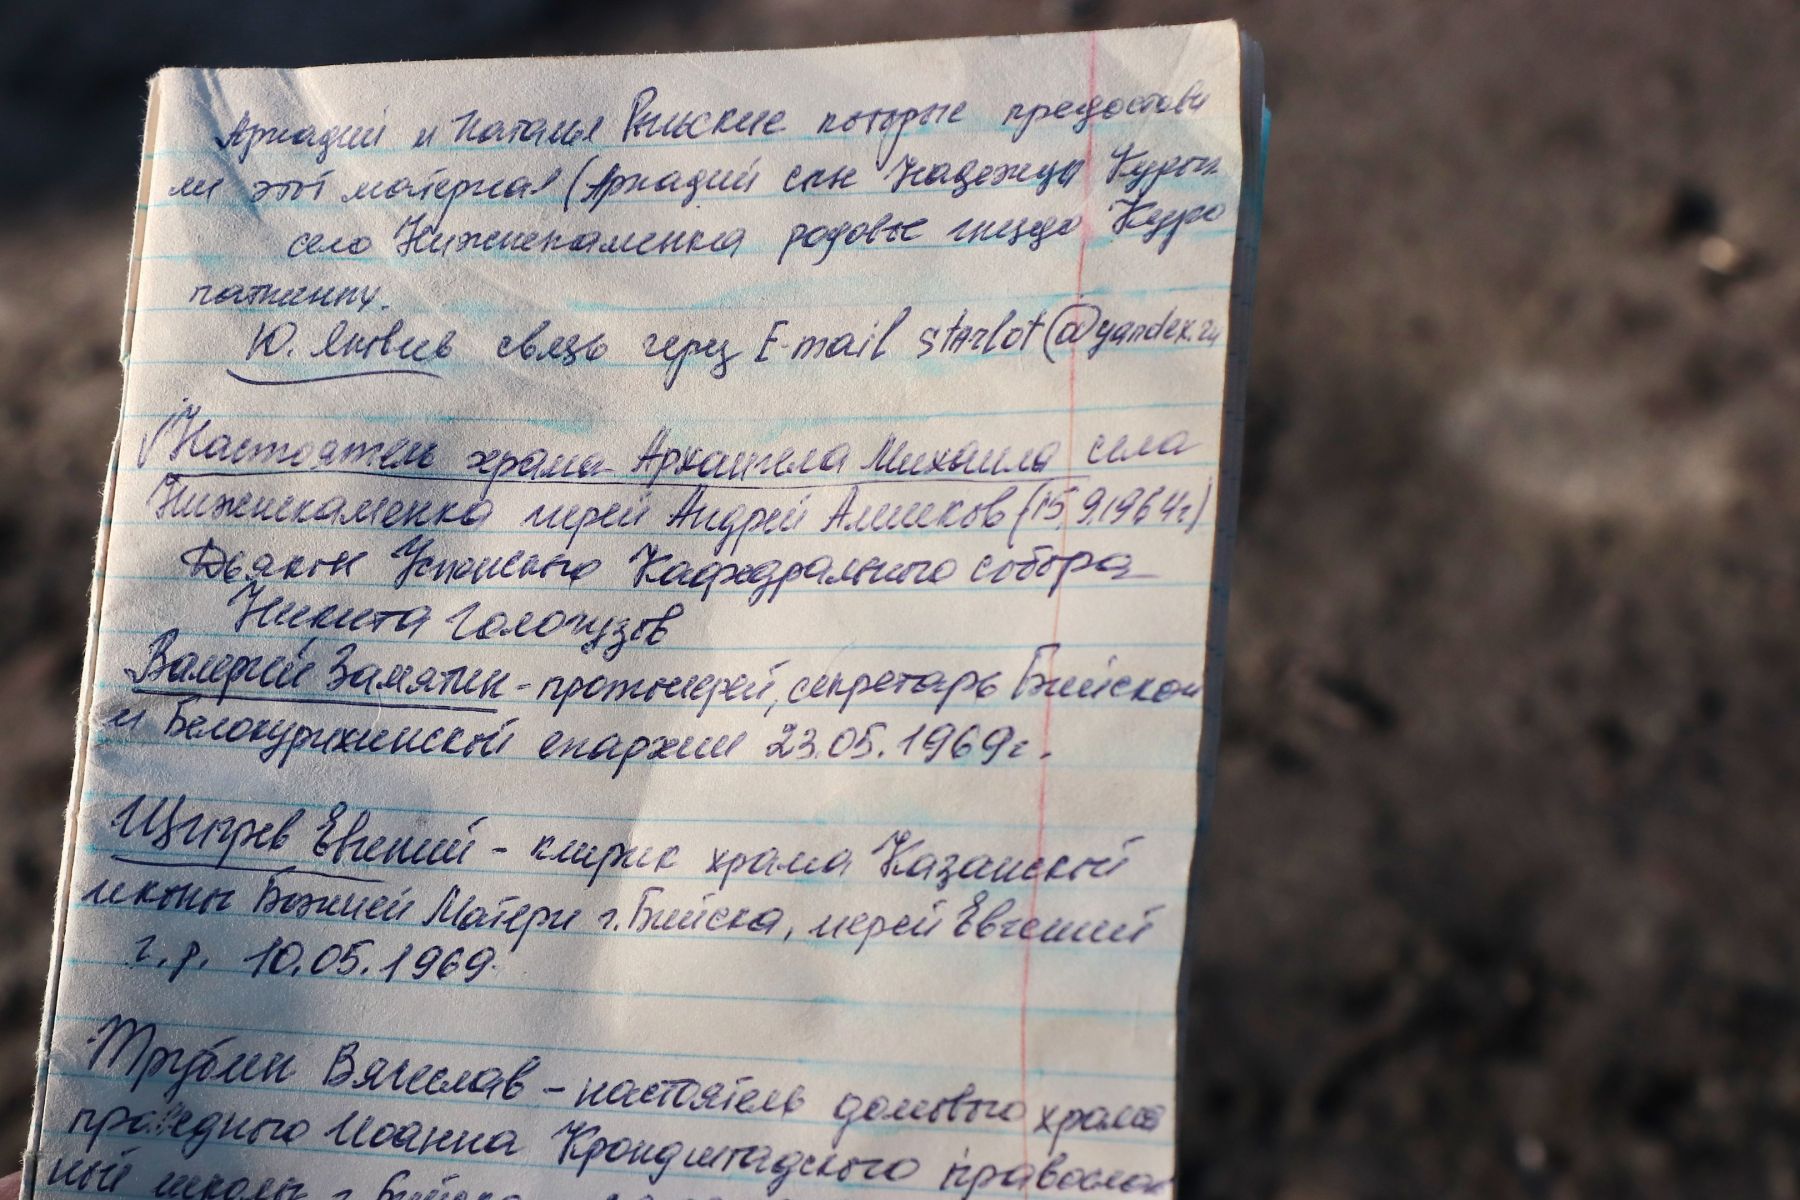 Аркадий и Наталья Рыльские которые предостави
ли этот материал (Аркадий сын Надежды
село Нижнекаменка родовые гнездо Куро
паткину.
Ю. Яковлев связь через E-mail starlot@yandex.ru
Настоятель храма Архангела Михаила села
Нижнекаменка иерей Андрей Алешков (15.9.1964г)
Дьякон Успенского Кафедрального собора
Никита Гологузов
Валерий Замятин - протоиерей, секретарь Бийской
и Белокурихинской епархии 23.05.1969г.
Щигрев Евгений - клирик храма Казанской
иконы Божией Матери г.Бийска, иерей Евгений
г.р. 10.05.1969.
Трубин Вячеслав - настоятель домового храма
праведного Иоанна Кронштадского православ
ной школы г. Бийска